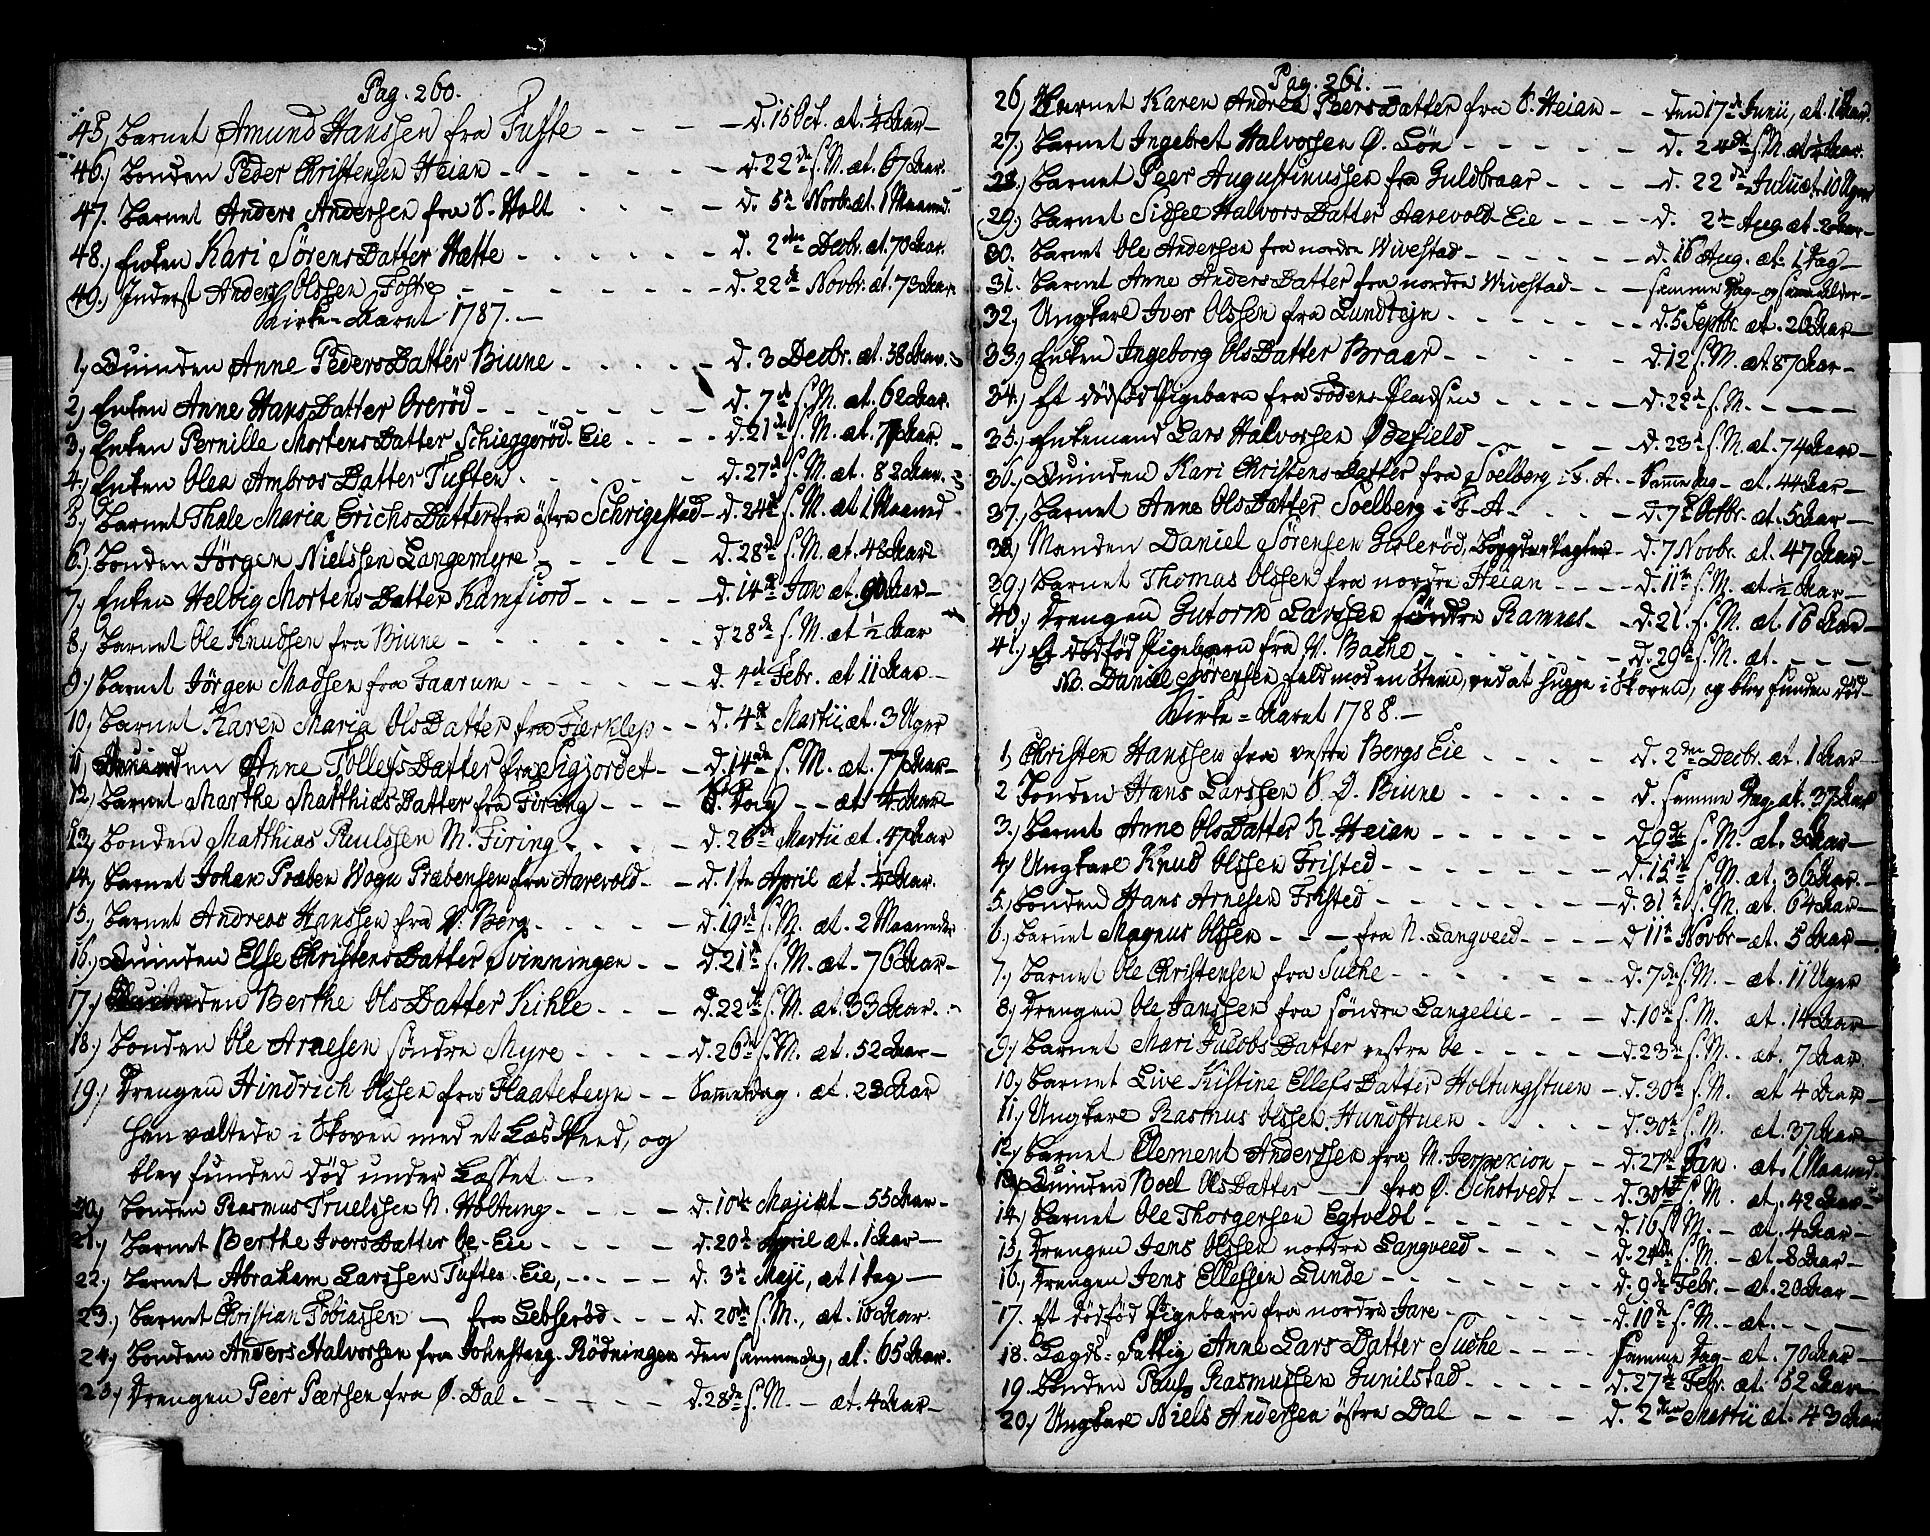 Pag. 260.
45, Barnet Amund Hanssen fra Tufte - - - - d. 15 Oct. æt. 1/4 Aar -
46, Bonden Peder Christensen Heian - - - - d. 22de s. M. æt. 67 Aar.
47. Barnet Anders Andersen fra S. Holt - - - - d. 5te Novbr. æt. 1 Maaned.
48, Enken Kari SørensDatter Hætte - - - - d. 2den Decbr. æt. 70 Aar.
49, Inderst Anders Olssen Foste - - - - d. 22de Novbr. æt. 73 Aar.
Kirke-Aaret 1787. -
1, Quinden Anne PedersDatter Biune - - - - d. 3 Decbr. æt. 38 Aar.
2, Enken Anne HansDatter Orerød - - - - d. 7de s. M. æt. 62 Aar.
3, Enken Pernille MortensDatter Schieggerød-Eie - - - - d. 21de s. M. æt. 71 Aar.
4, Enken Olea AmbrosDatter Tuften - - - - d. 27de s. M. æt. 82 Aar.
5, Barnet Thale Maria ErichsDatter fra östre Schrigestad - d. 24de s. M. æt 1 Maaned
6, Bonden Jörgen Nielssen Langemyre - - - - d. 28de s. M. æt. 48 Aar
7, Enken Helvig MortensDatter Kamfiord - - - - d. 14de Jan æt. 90 Aar -
8, Barnet Ole Knudsen fra Biune - - - - d 28de s. M. æt 1/2 Aar
9, Barnet Jörgen Madsen fra Faarum - - - - d. 4de Febr. æt 11 Aar -
10, Barnet Karen Maria OlsDatter fra Fierklep - - d. 4de Martii æt. 3 Uger
11, Quinden Anne TollefsDatter fra Sigjordet - - d. 14de s. M. æt. 77 Aar -
12, Barnet Marthe MatthiasDatter fra Firing - - - S. Dag - - æt. 4 Aar -
13, Bonden Matthias Paulssen M. Firing - - - - d. 26de Martii æt. 47 Aar
14, Barnet Johan Præben Wogn Præbensen fra Aarevold - - d. 1ste April æt. 1/4 Aar.
15, Barnet Andreas Hanssen fra V. Berg - - - - d. 19de s. M. æt. 2 Maaneder
16. Quinden Else ChristensDatter Svinningen - - d. 21de s. M. æt. 76 Aar -
17, Quinden Berthe OlsDatter Kihle - - - d. 22de s. M. æt. 33 Aar.
18, Bonden Ole Arnesen söndre Myre - - - - d. 26de s. M. æt. 52 Aar -
19, Drengen Hindrich Olssen fra Flaateteyn - - Samme Dag. æt. 23 Aar
han væltede i Skoven med et Læs Veed, og
blev funden död under Læsset. -
20, Bonden Rasmus Truelssen N. Holtung - - - - d. 10de Maji æt - 55 Aar -
21, Barnet Berthe IversDatter Oe-Eie - - - - d. 20de April æt. 1 Aar -
22, Barnet Abraham Larssen Tufte-Eie, - - - - d. 3de Maji, æt 1 Dag -
23, Barnet Christian Tobiassen - fra Lebserød - - - d. 20de s. M., æt. 10 Aar.
24, Bonden Anders Halvorsen fra Johnstang-Rödningen den samme dag, æt. 65 Aar.
25, Drengen Peer Pærsen fra Ø. Dal - - - - d. 28de s. M. - æt. 4 Aar -
Pag. 261. -
26, Barnet Karen Andrea PeersDatter fra S. Heian - - den 17de Junii, æt. 1 Aar.
27, Barnet Ingebret Halvorsen Ø. Lön - - - - d. 24de s. M. æt 1/2 Aar.
28, Barnet Peer Augustinussen fra Guldbraar - - - - d. 22de Julii æt. 10 Uger
29, Barnet Sidsel HalvorsDatter Aarevold-Eie - - - - d. 2de Aug. æt. 2 Aar -
30. Barnet Ole Andersen fra nordre Wivestad - - - - d. 16 Aug. æt. 1 Dag -
31. Barnet Anne AndersDatter fra nordre Wivestad - - - samme Dag - og samme Alder -
32, Ungkarl Iver Olssen fra Lundteyn - - - - d. 5 Septbr. æt. 26 Aar -
33, Enken Ingeborg OlsDatter Braar - - - - d. 12 s. M. æt. 87 Aar -
34, Et dödföd Pigebarn fra Fodens-Pladsen - - - - d. 22de s. M. - - - -
35, Enkemand Lars Halvorssen Ødefield - - - - d. 23de s. M. æt. 74 Aar -
36, Quinden Kari ChristensDatter fra Soelberg i F. A. - Samme Dag - æt. 44 Aar -
37, Barnet Anne OlsDatter Soelberg i F-A - - - - d. 7de Octbr. æt. 5 Aar -
38, Manden Daniel Sørensen Gislerød, Bøygder Vagter - d. 7 Novbr. æt. 47 Aar -
39, Barnet Thomas Olssen fra nordre Heian - - - - d. 11te s. M. æt. 1/2 Aar -
40, Drengen Gutorm Larssen søndre Ramnes - - d. 21. s. M. æt. 16 Aar -
41, Et dödföd Pigebarn fra V. Bache - - - - d. 29de s. M. æt. - - -
NB. Daniel Sørensen faldt mod en Steen, ved at hugge i Skoven, og blev funden död -
Kirke-Aaret 1788. -
1, Christen Hanssen fra vestre Bergs Eie - - - - d. 2den Decbr. æt. 1 Aar -
2 Bonden Hans Larssen S. Ø. Biune - - - - d. samme Dag, æt. 37 Aar
3, Barnet Anne OlsDatter N. Heian - - - - d. 9de s. M. æt. 3 Aar -
4, Ungkarl Knud Olssen Fristed - - - - d. 15de s. M. æt. 36 Aar -
5, Bonden Hans Arnesen Fristed - - - - d. 31te s. M. æt. 64 Aar -
6, Barnet Magnus Olssen - - - fra N. Langveed - - - d 11te Novbr - æt. 5 Aar -
7, Barnet Ole Christensen fra Suche - - - - d. 7de s. M. - æt. 11 Uger
8, Drengen Ole Janssen fra söndre Langelie - - - d. 10de s. M. æt. 14 Aar -
9, Barnet Mari JacobsDatter vestre Oe - - - - d. 23de s. M. - æt. 7 Aar
10, Barnet Live Kistine EllefsDatter Holtungstuen - d. 30te s. M. æt 4 Aar -
11, Ungkarl Rasmus Olssen Hundstuen - - - - d. 30te s. M. æt. 37 Aar -
12, Barnet Clement Anderssen fra N. Jerpexion - - d. 27de Jan. æt. 1 Maaned.
13, Quinden Boel OlsDatter - fra Ø. Ilchstvedt - - d. 30te s. M. æt. 42 Aar -
14, Barnet Ole Thorgersen Egtvedt - - - - d. 16 s. M. - æt. 4 Aar -
15, Drengen Jens Olssen nordre Langveed - - - - d. 24de s. M. - æt. 8 Aar -
16, Drengen Jens Ellefsen Lunde - - - - d. 9de Febr. - æt. 20 Aar -
17. Et dödföd Pigebarn fra nordre Jare - - - - d. 10de s. M. - æt. - - -
18. Lægds-Fattig Anne LarsDatter Suche - - - - Samme Dag - æt. 70 Aar -
19. Bonden Pauls Rasmussen Gunilstad - - - - d. 27de Febr. æt. 52 Aar -
20, Ungkarl Niels Andersen östre Dal - - - - d. 2den Martii æt. 43 Aar